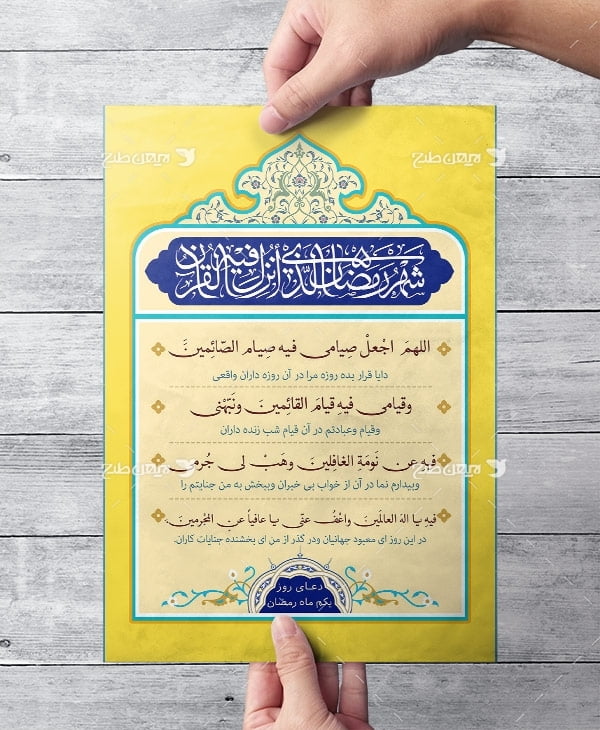 شَهْرُ رَمَضَانَ الَّذِي أُنْزِلَ فِيهِ الْقُرْآنُ
اللهمَ اجْعلْ صِيامي فيه صِيام الصّائِمينَ
دایا قرار بده روزه مرا در آن روزه داران واقعی
وقيامي فيهِ قيامَ القائِمينَ ونَبّهْني
وقیام وعبادتم در آن قیام شب زنده داران
فيهِ عن نَومَةِ الغافِلينَ وهَبْ لي جُرمي
وبیدارم نما در آن از خواب بی خبران وببخش به من جنایتم را
فيهِ يا الهَ العالمَينَ واعْفُ عنّي يا عافياً عنِ المُجْرمينَ.
در این روز ای معبود جهانیان ودر گذر از من ای بخشنده جنایات کاران.
دعـای روز
یکم ماه رمضان
میهن طرح
میهن طرح
میهن طرح
میهن طرح